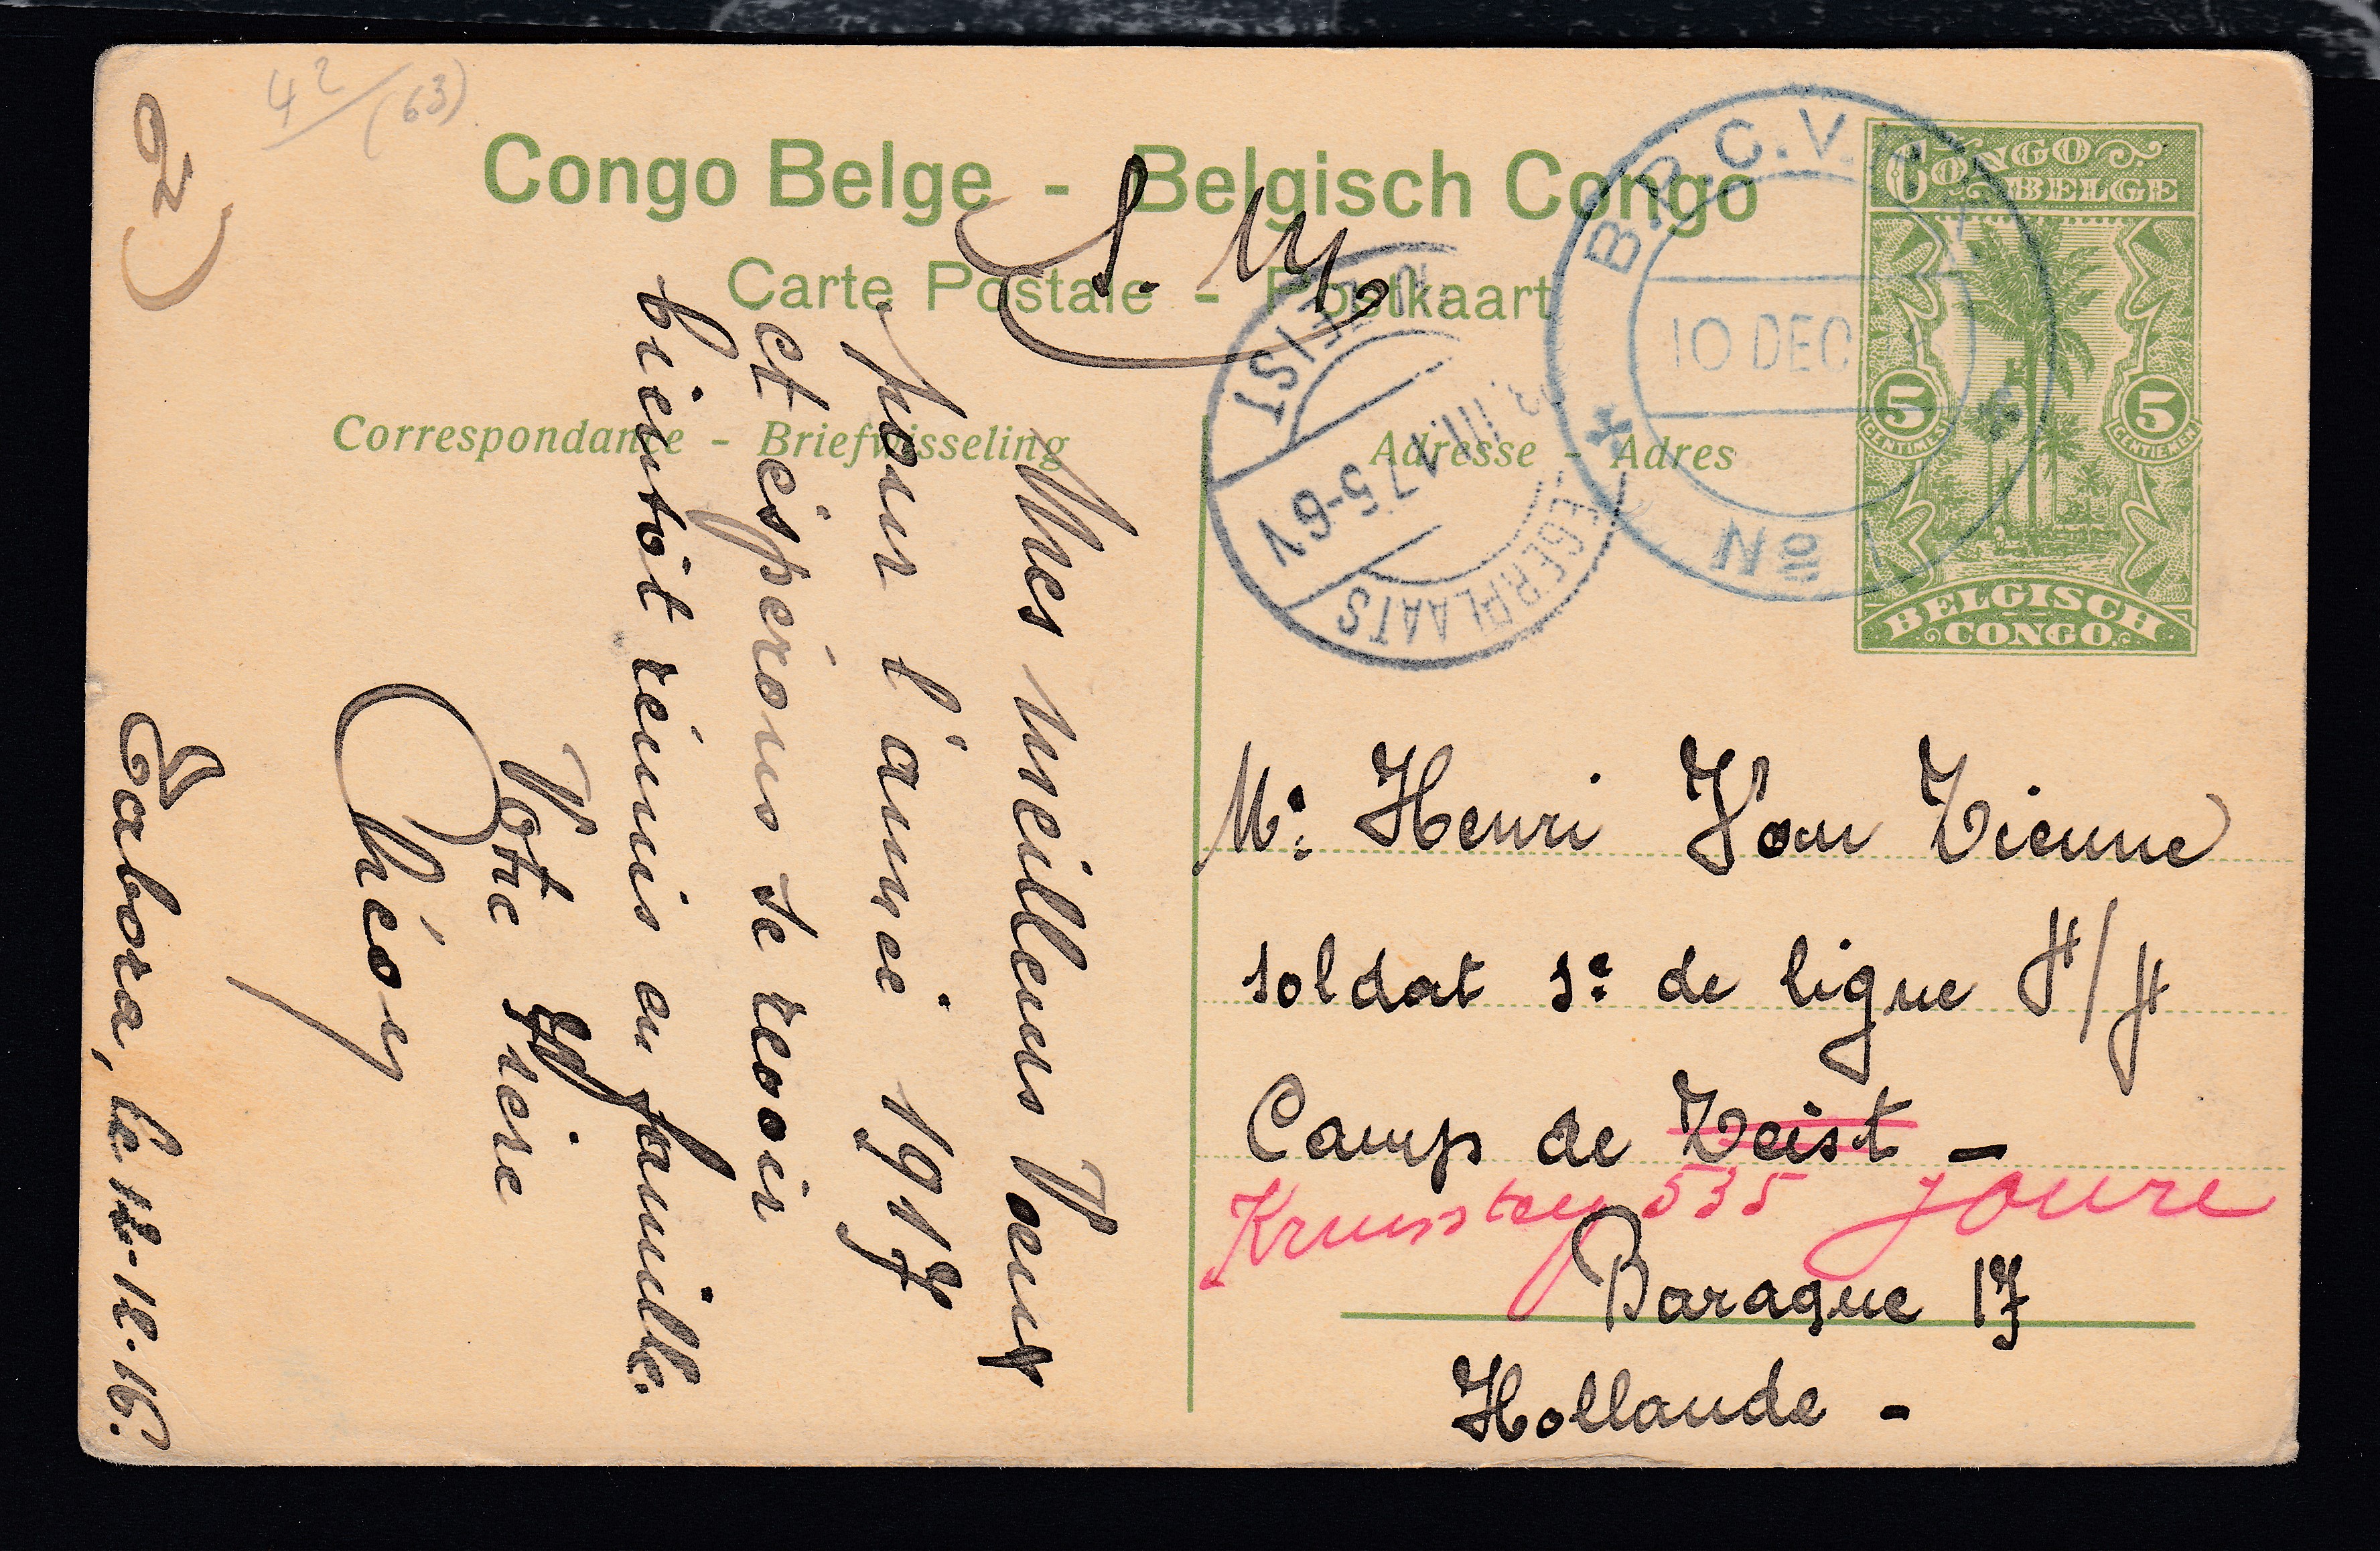 42/(63)
Congo Belge - Belgisch Congo
Carte Postale - Postkaart
Correspondance - Briefwisseling
Adresse - Adres
CONGO BELGE
5 CENTIMES
5 CENTIEMEN
BELGISCH CONGO
B.P.C.V.P.K.
10 DEC
No 1
LEGERPLAATS
ZEIST
17 5-6V
S. M.
Mes meilleurs Vœux
pour l'année 1917
et espérons se revoir
bientôt réunis en famille.
Votre frère
Théo
Tabora, le 12-12-16.
Mr Henri Van Zienne
soldat 3e de ligne
Camp de Zeist -
535 Joure
Baraque 17
Hollande -